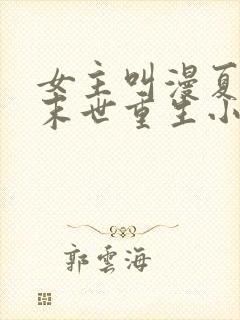 女主叫漫夏
末世重生小
郭雲海